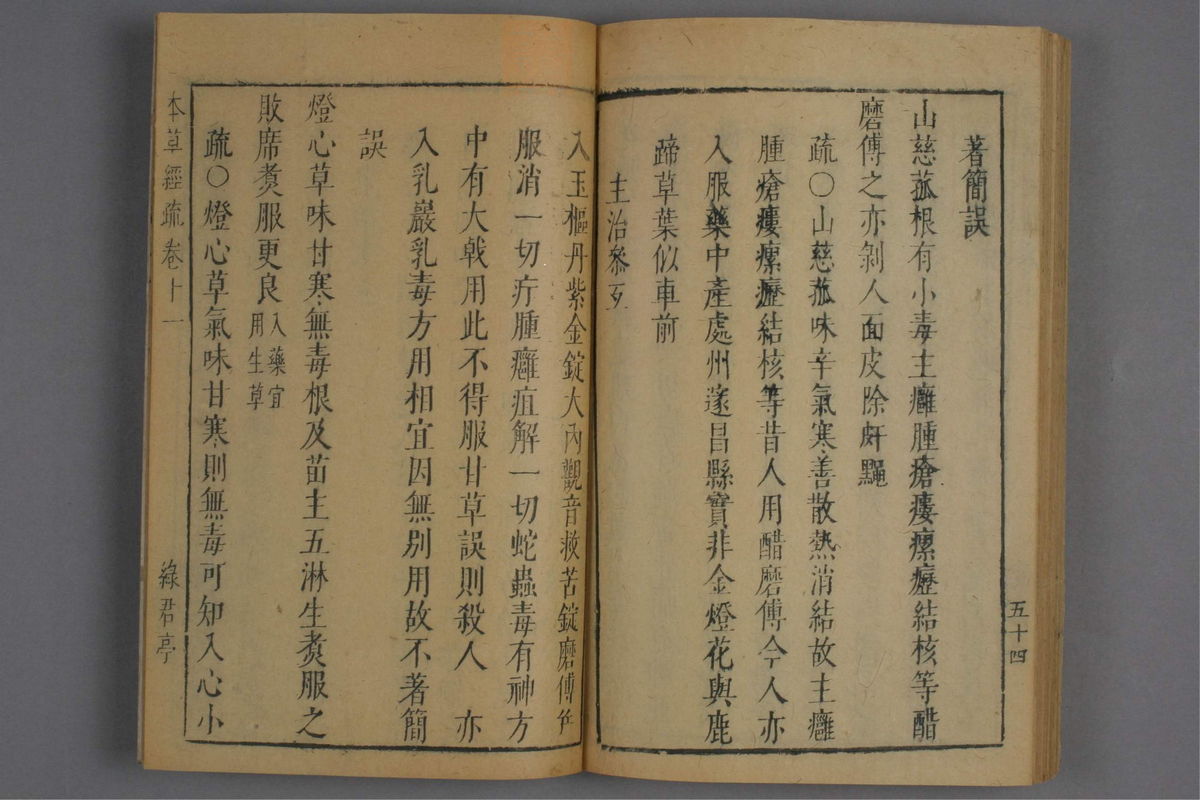 著簡誤
山慈菰根有小毒主癰腫瘡瘻瘰癧結核等醋
磨傅之亦剝人面皮除皯䵳
疏〇山慈菰味辛氣寒善散熱消結故主癰
腫瘡瘻瘰癧結核等昔人用醋磨傅今人亦
入服藥中產處州遂昌縣實非金燈花與鹿
蹄草葉似車前
主治參互
五十四
入玉樞丹紫金錠大內觀音救苦錠磨傅并
服消一切疔腫癰疽解一切蛇蟲毒有神方
中有大戟用此不得服甘草誤則殺人 亦
入乳巖乳毒方用相宜因無別用故不著簡
誤
燈心草味甘寒無毒根及苗主五淋生煑服之
敗席煑服更良入藥宜用生草
疏〇燈心草氣味甘寒則無毒可知入心小
本草經疏卷十一
綠君亭